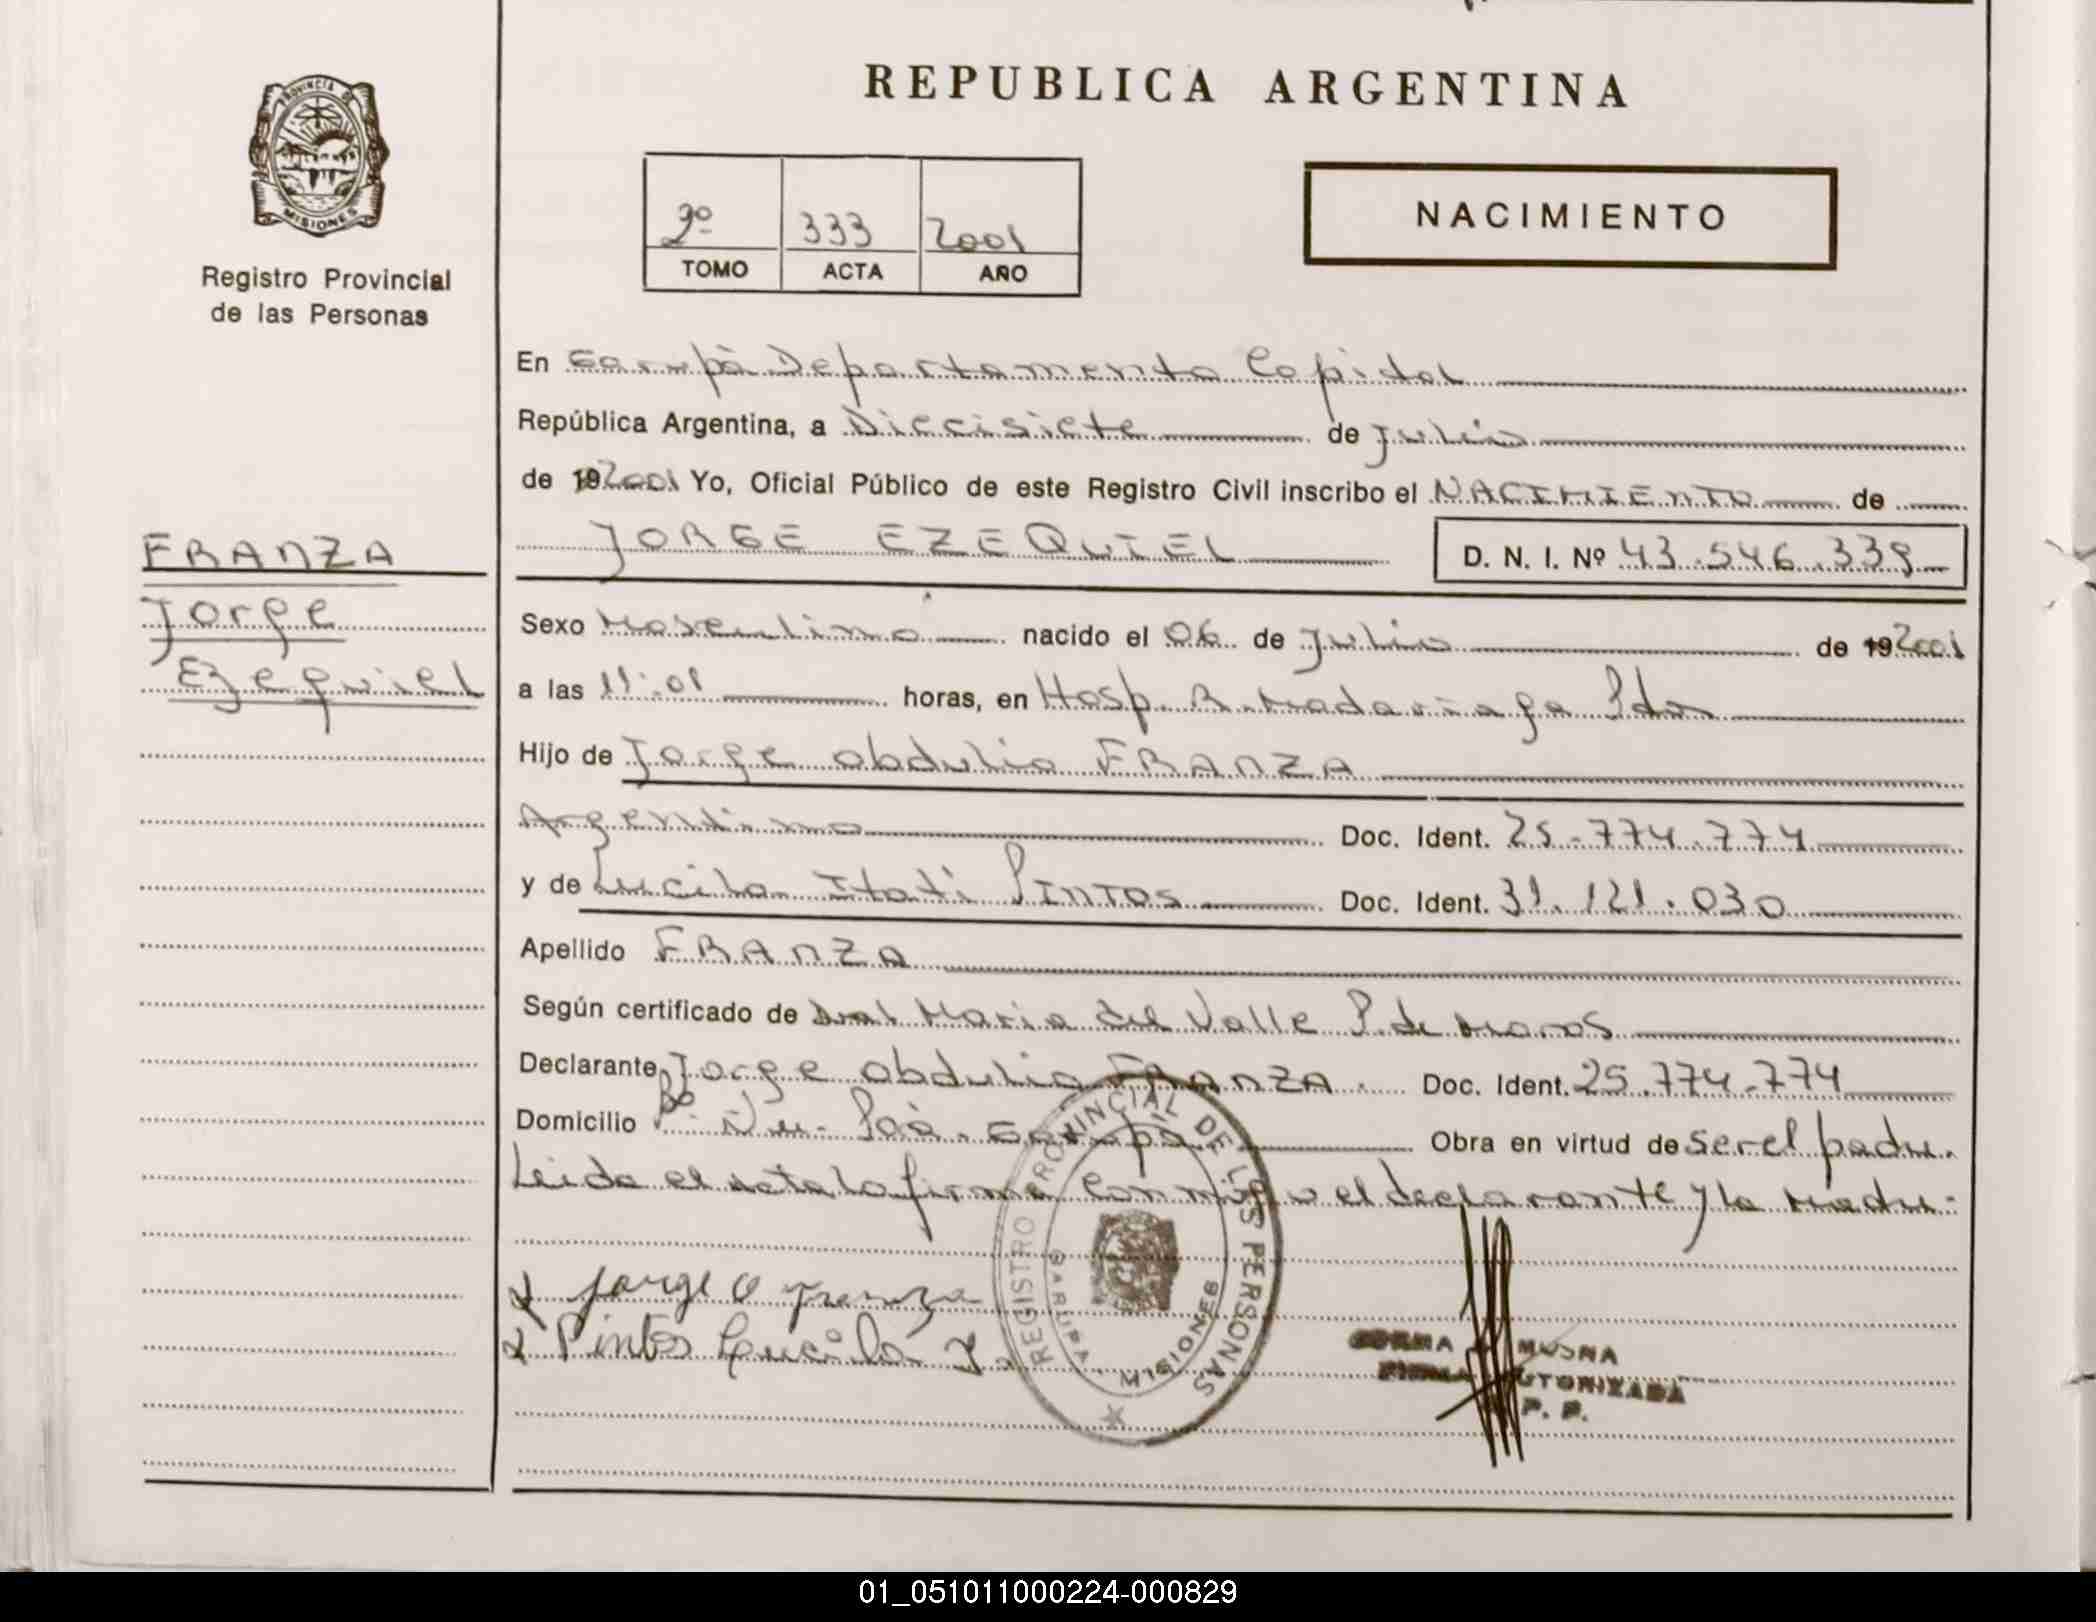 REPUBLICA ARGENTINA
PROVINCIA DE
MISIONES
Registro Provincial
de las Personas
2º 333 2001
TOMO ACTA AÑO
NACIMIENTO
En Garupà Departamento Capital
República Argentina, a Diecisiete de Julio
de 192001 Yo, Oficial Público de este Registro Civil inscribo el NACIMIENTO de
JORGE EZEQUIEL
D. N. I. Nº 43.546.339
FRANZA
Jorge
Ezequiel
Sexo Masculino nacido el 06 de Julio de 192001
a las 11:01 horas, en Hosp. R. Madariaga Pdas
Hijo de Jorge Obdulio FRANZA
Argentino Doc. Ident. 25.774.774
y de Lucila Itatí PINTOS Doc. Ident. 31.121.030
Apellido FRANZA
Según certificado de Maria del Valle P. de
Declarante Jorge Obdulio FRANZA. Doc. Ident. 25.774.774
Domicilio Bº Ñu-Porà-Garupà Obra en virtud de ser el padre.
Leida el acta la firma conmigo el declarante y la Madre:
Jorge O Franza
Pintos Lucila I.
REGISTRO PROVINCIAL DE LAS PERSONAS
GARUPA
MISIONES
MUSNA
AUTORIZADA
R. P.
01_051011000224-000829